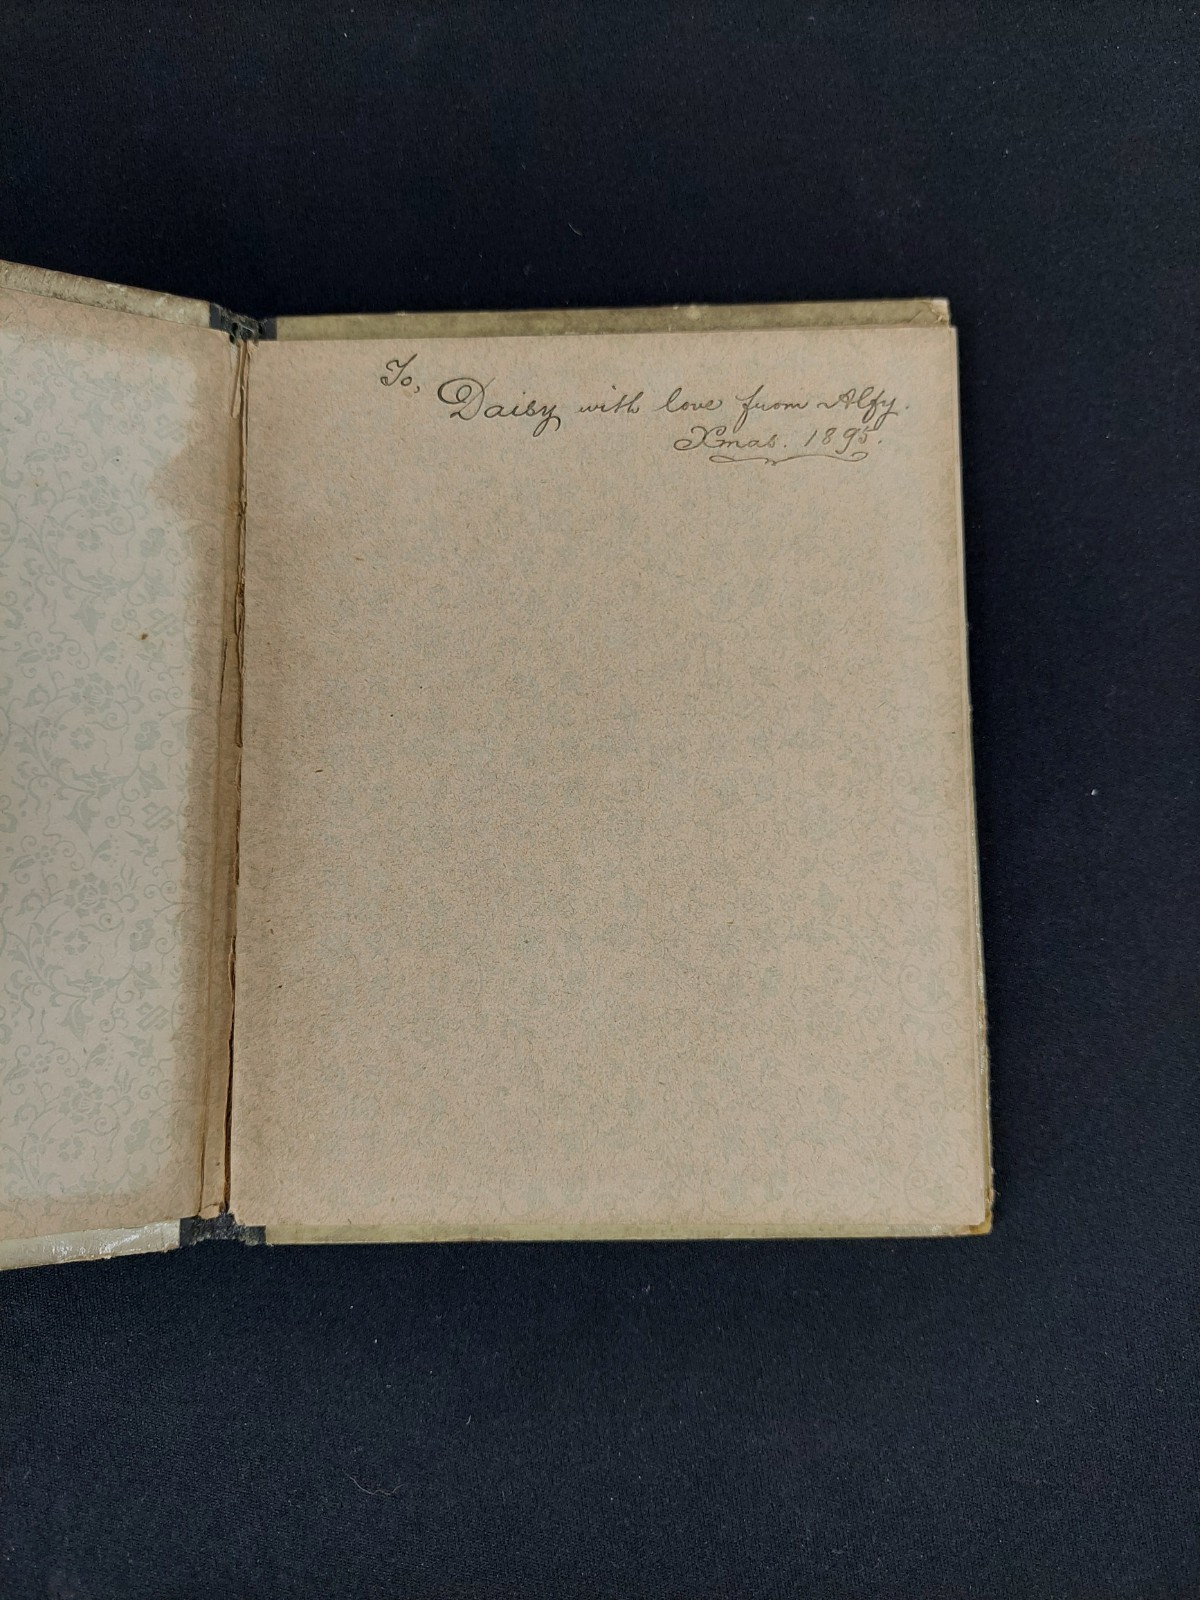 To,
Daisy with love from Alfy.
Xmas. 1895.